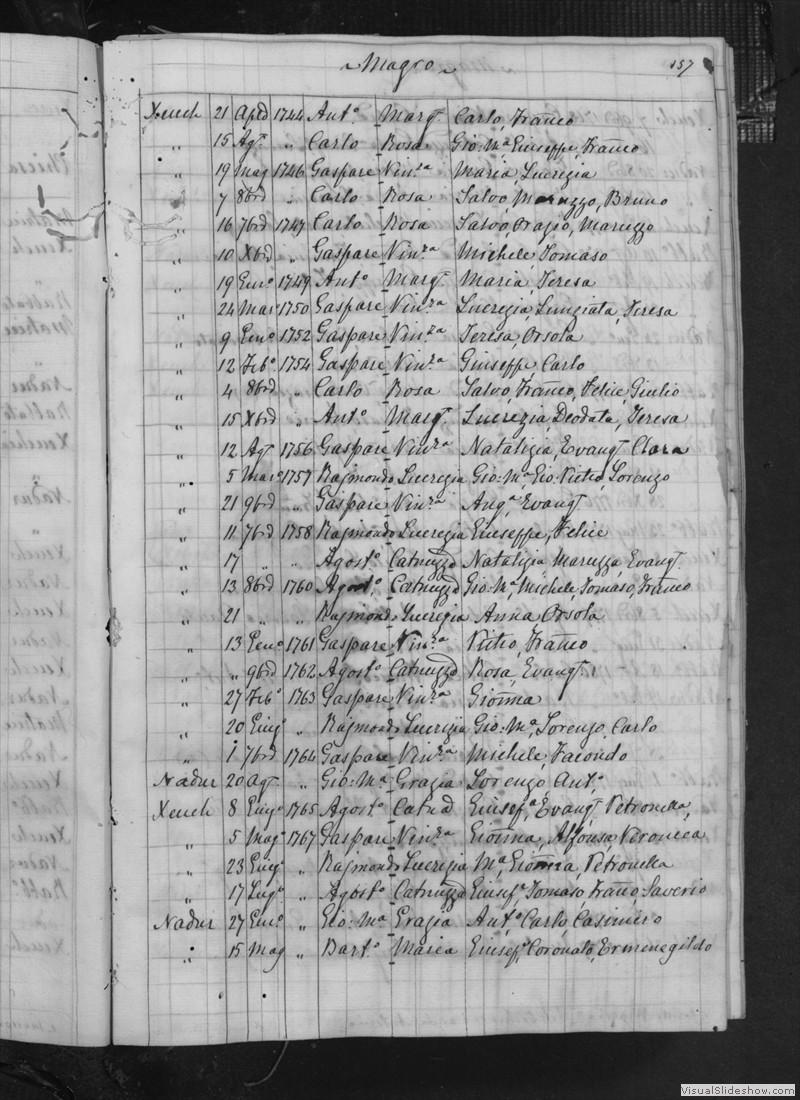 Magro
157
Xeuch 21 Aple 1744 Anto Margta Carlo, Franco
" 15 Agto " Carlo Rosa Gio: Ma Giuseppe, Franco
" 19 Mag 1746 Gaspare Vinza Maria, Lucrezia
" 7 8bre " Carlo Rosa Salvo, Maruzzo, Bruno
" 16 7bre 1747 Carlo Rosa Salvo, Orazio, Maruzzo
" 10 Xbre " Gaspare Vinza Michele, Tomaso
" 19 Geno 1749 Anto Margta Maria, Teresa
" 24 Mar 1750 Gaspare Vinza Lucrezia, Lungiata, Teresa
" 9 Geno 1752 Gaspare Vinza Teresa, Orsola
" 12 Febo 1754 Gaspare Vinza Giuseppe, Carlo
" 4 8bre " Carlo Rosa Salvo, Franco, Felice, Giulio
" 15 Xbre " Anto Margta Lucrezia, Deodata, Teresa
" 12 Agto 1756 Gaspare Vinza Natalizia, Evangta Clara
" 5 Marzo 1757 Rajmondo Lucrezia Gio: Ma, Gio: Pietro, Lorenzo
" 21 9bre " Gaspare Vinza Anga, Evangta
" 11 7bre 1758 Rajmondo Lucrezia Giuseppe, Felice
" 17 " " Agosto Catruzza Natalizia Maruzza Evangta
" 13 8bre 1760 Agosto Catruzza Gio: Ma, Michele, Tomaso, Franco
" 21 " " Rajmondo Lucrezia Anna Orsola
" 13 Geno 1761 Gaspare Vinza Pietro, Franco
" " 9bre 1762 Agosto Catruzza Rosa, Evangta
" 27 Febo 1763 Gaspare Vinza Gioanna
" 20 Giugo " Rajmondo Lucrezia Gio: Ma, Lorenzo, Carlo
" 1 7bre 1764 Gaspare Vinza Michele, Facondo
Nadur 20 Agto " Gio: Ma Grazia Lorenzo, Anto
Xeuch 8 Giugo 1765 Agosto Giusefa, Evangta, Petronella
" 5 Mago 1767 Gaspare Vinza Gioanna, Alfonsa, Veronica
" 23 Giugo " Rajmondo Lucrezia Ma, Gioanna, Petronella
" 17 Lugo " Agosto Catruzza Giusefe, Tomaso, Franco, Saverio
Nadur 27 Geno " Gio: Ma Grazia Anto Carlo, Casimiro
" 15 Mag " Barto Maria Giusefe, Coronato, Ermenegildo
VisualSlideshow.com